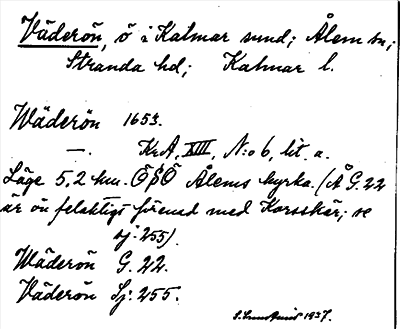 Väderön, ö i Kalmar sund; Ålem sn;
Stranda hd; Kalmar l.
Wäderön 1653.
—. KrA, XIII, N:o 6, lit. a.
Läge 5,2 km. ÖSÖ Ålems kyrka. (Å G. 22
är ön felaktigt förenad med Korsskär; se
sj. 255).
Wäderön G. 22.
Väderön Sj. 255.
1937.